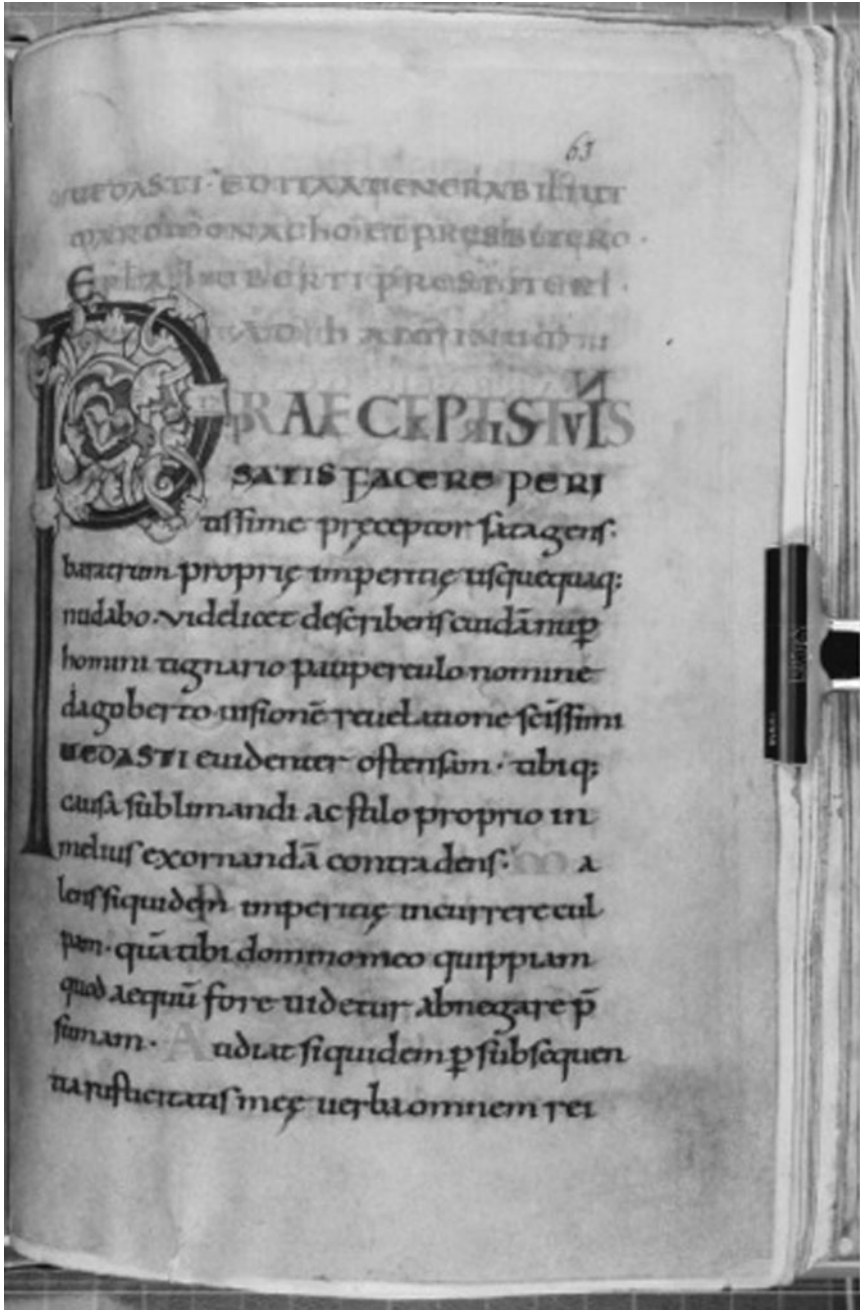 63
UEDASTI · EDITA A UENERABILI
MONACHO ET PRESBITERO ·
PRESBITERI ·
PRAECEPTIS TVIS
SATISFACERE PERI
tissime pręceptor satagens ·
baratrum proprię imperitię usquequaq:
nudabo · videlicet describens cuidā nup̄
homini tignario pauperculo nomine
dagoberto uisionē reuelatione sc̄issimi
UEDASTI euidenter ostensam · tibiq;
causa sublimandi ac stilo proprio in
melius exornandā contradens · ma
lens siquidem imperitię incurrere cul
pam · quā tibi domino meo quippiam
quod aequū fore uidetur abnegare p̄
sumam · Audiat siquidem p subsequen
tia rusticitatis meę uerba omnem rei